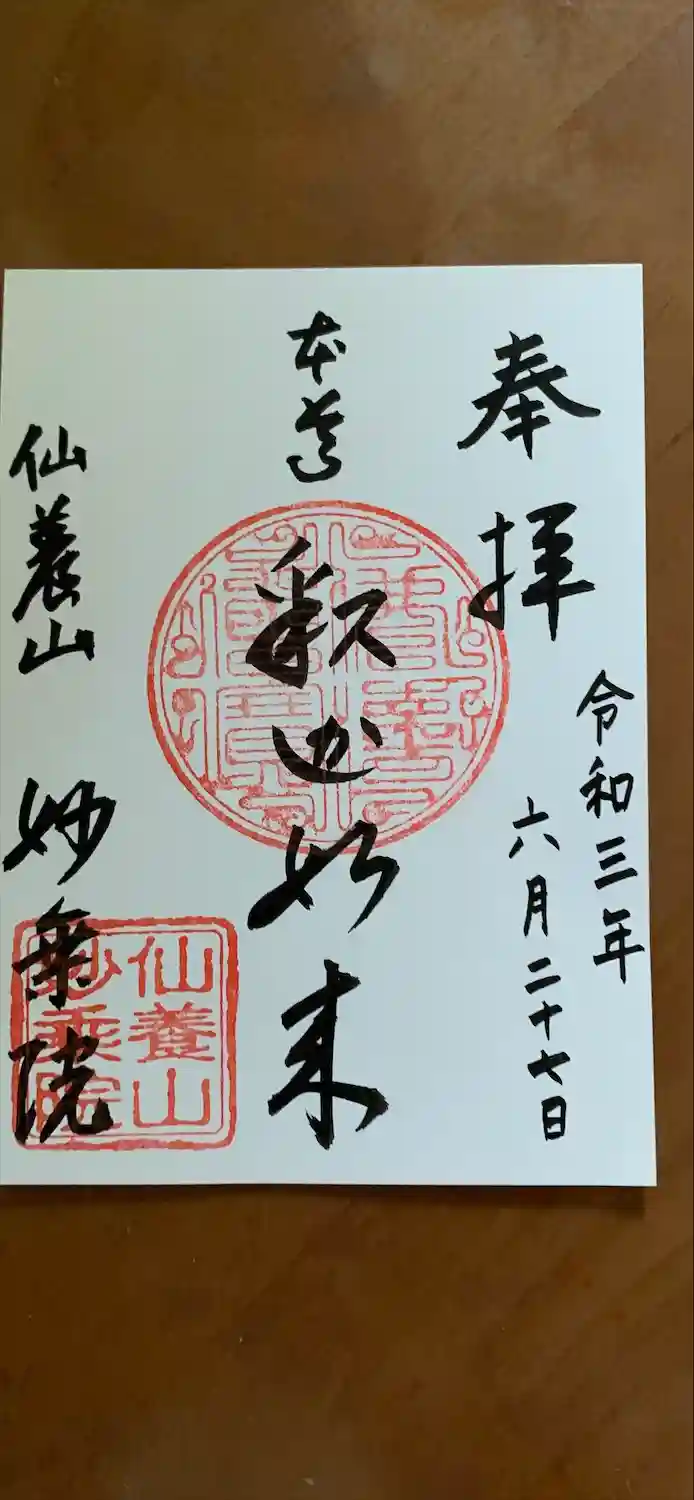 奉拝
令和三年
六月二十七日
本尊
釈迦如来
仙養山 妙乗院
仙養山
妙乗院